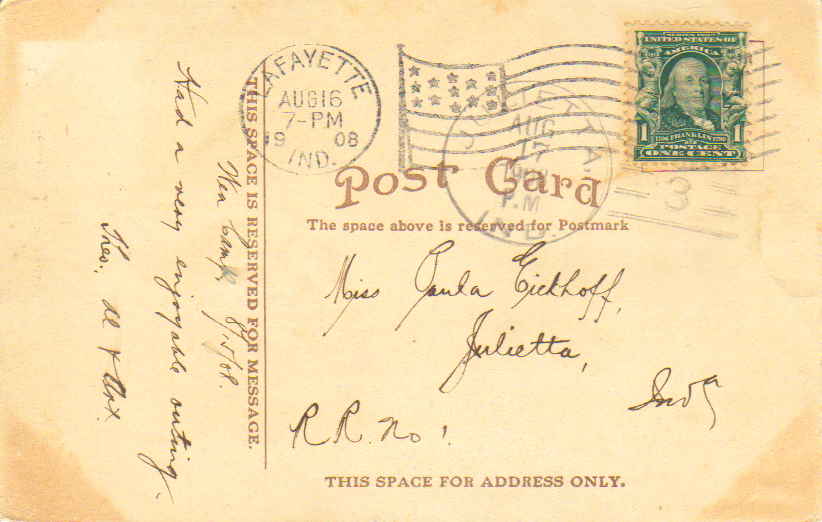 LAFAYETTE
AUG 16
7-PM
1908
IND.
AUG
17
P.M
IND.
3
UNITED STATES OF
AMERICA
1 FRANKLIN 1
POSTAGE
ONE CENT
Post Card
The space above is reserved for Postmark
THIS SPACE IS RESERVED FOR MESSAGE.
Camp 8/15/08.
Had a very enjoyable outing.
Theo.
Miss Paula Eickhoff,
Julietta,
Ind
R.R. No 1.
THIS SPACE FOR ADDRESS ONLY.